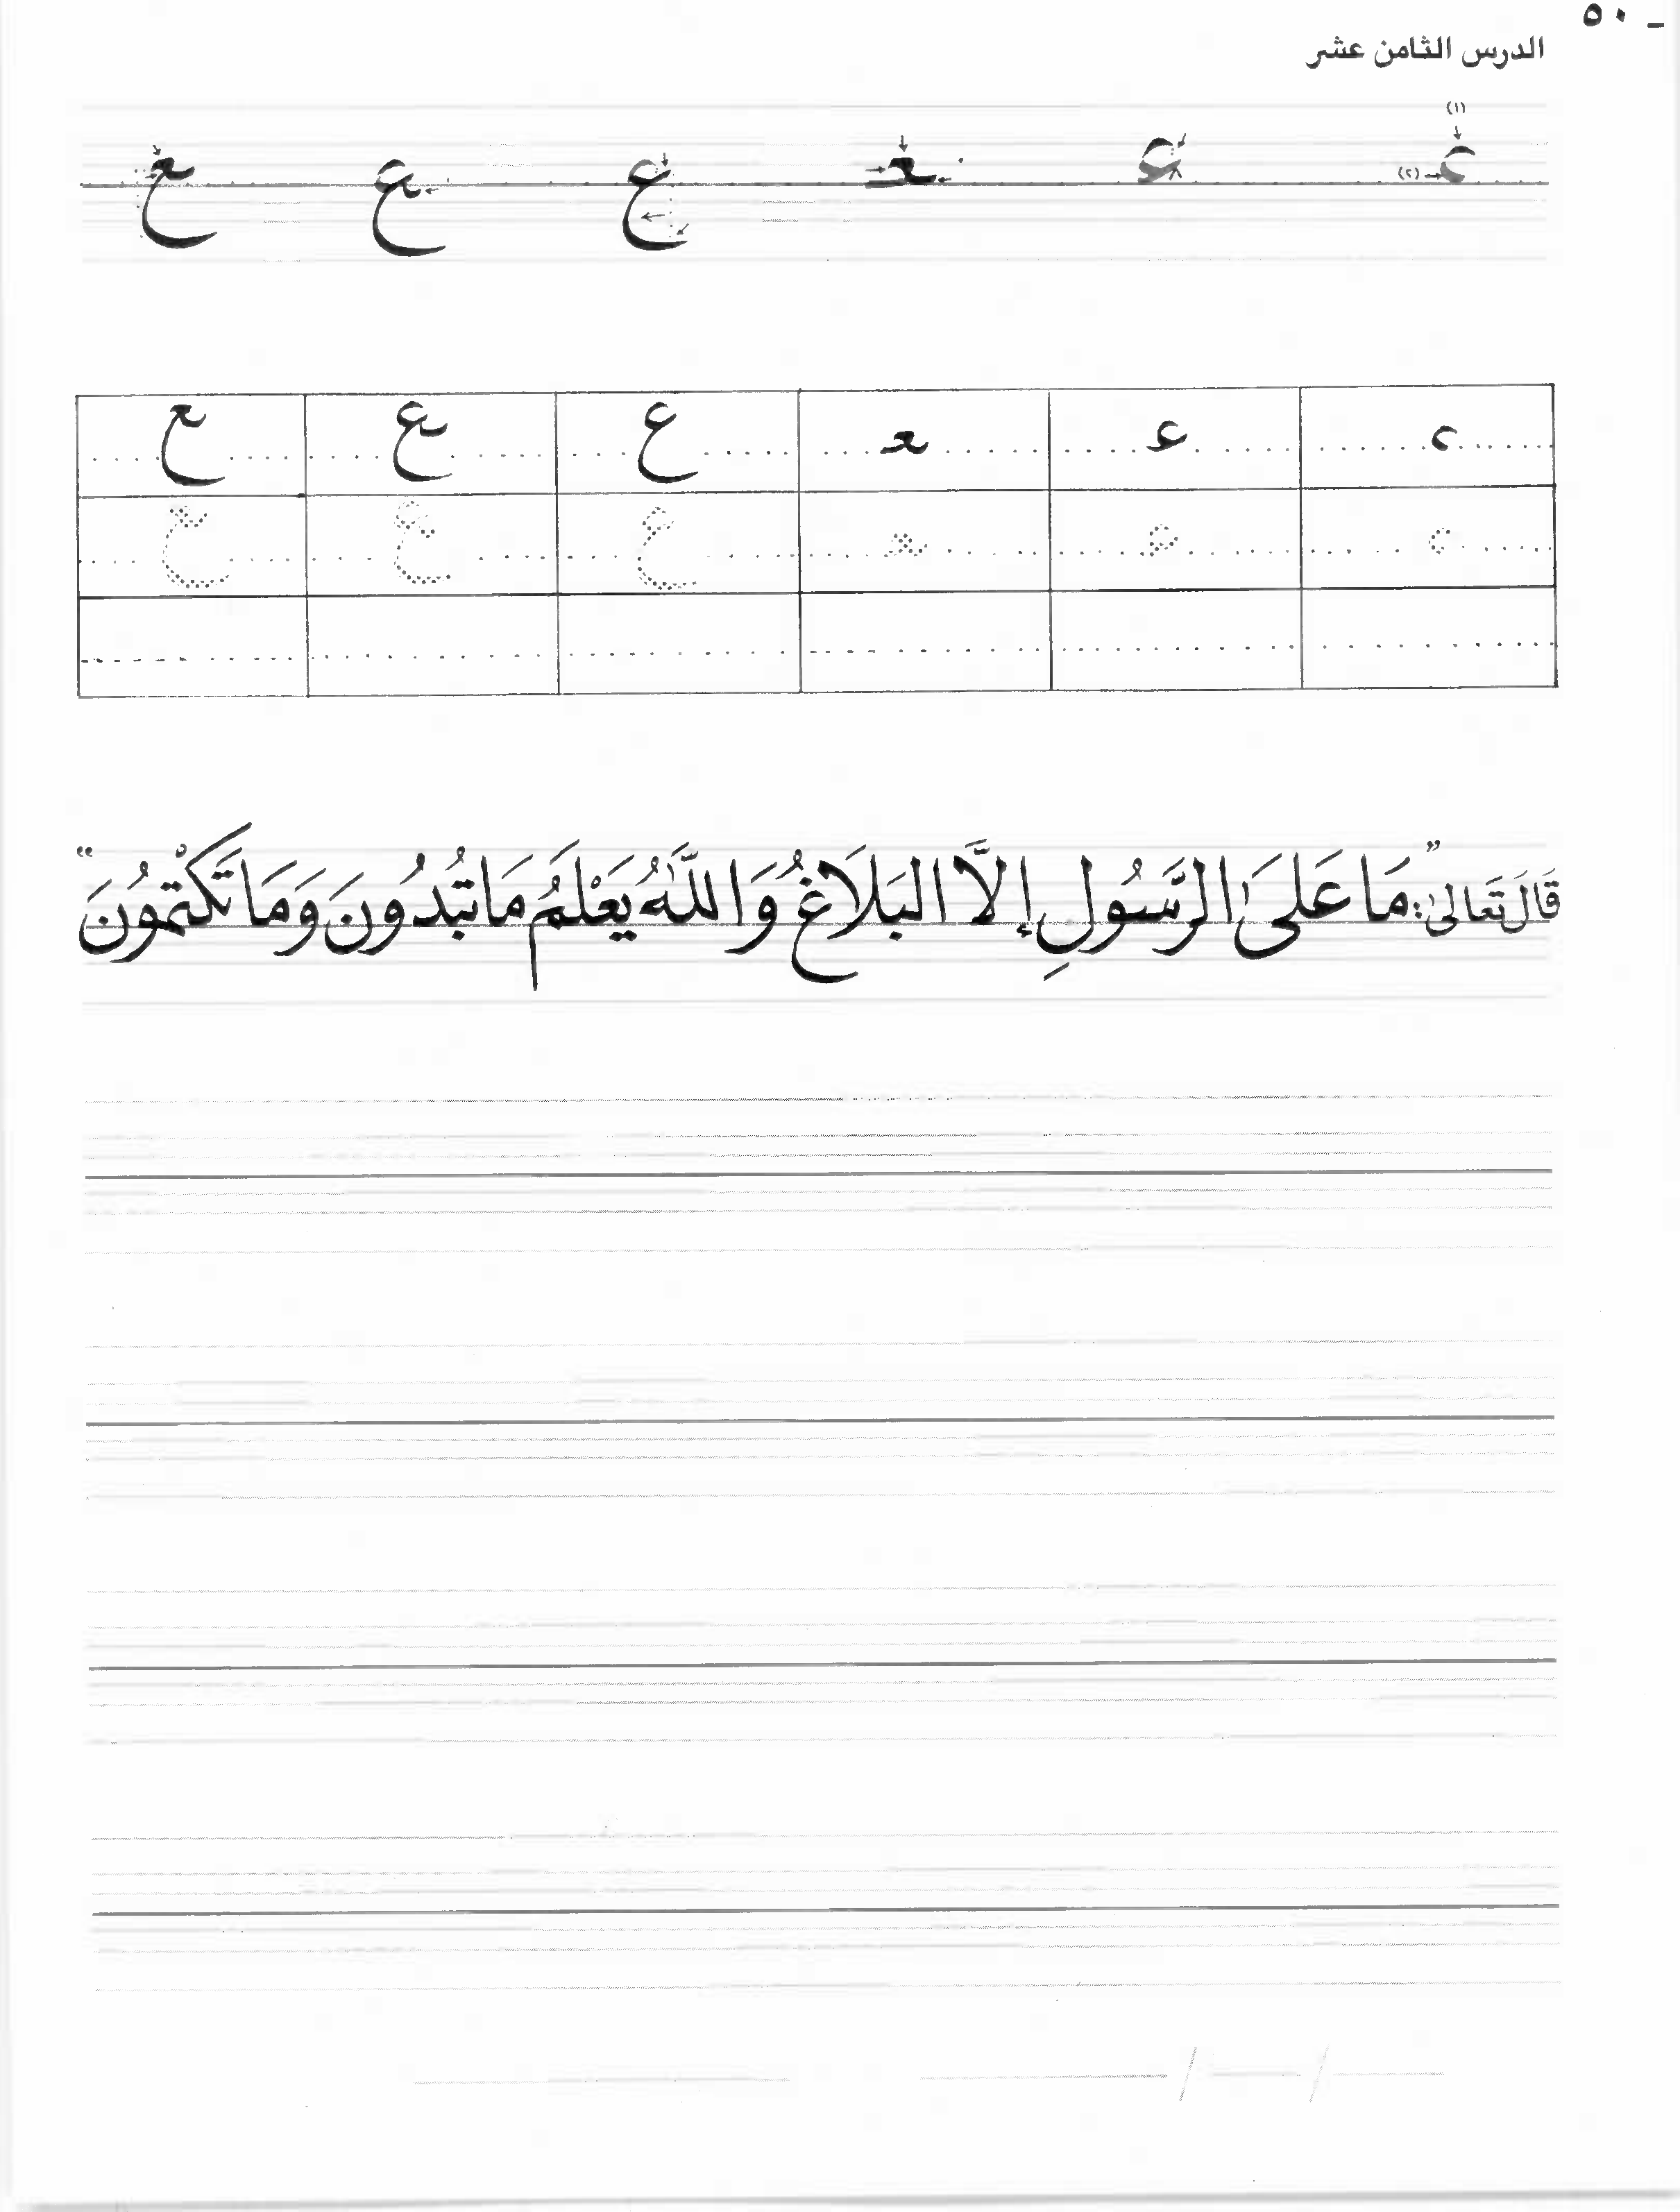 ـ ٥٠
الدرس الثامن عشر
(١)
(٢) ع ع ـعـ ع ـع ـع
ع ع ـعـ ع ـع ـع
ع ع ـعـ ع ـع ـع
قَالَ تَعَالىٰ: ”مَا عَلَىٰ الرَّسُولِ إلاَّ البَلَاغُ وَاللَّهُ يَعْلَمُ مَا تُبْدُونَ وَمَا تَكْتُمُونَ“